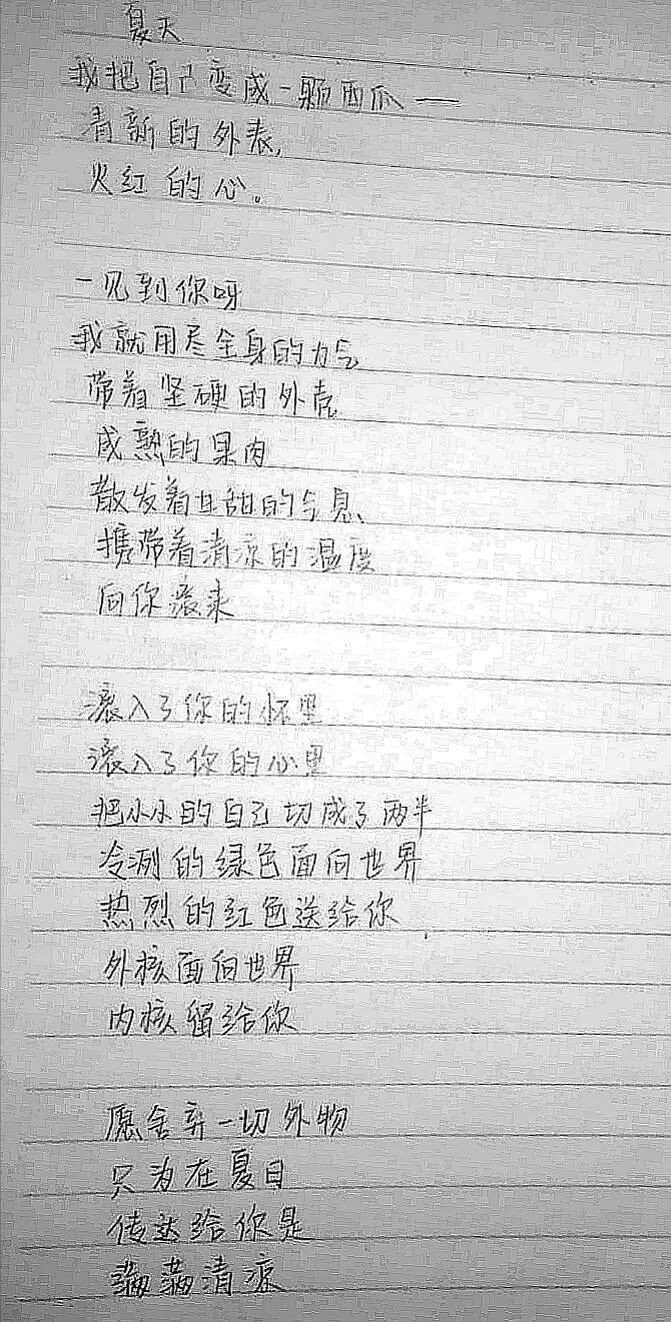 夏天
我把自己变成一颗西瓜——
清新的外表,
火红的心。
一见到你呀
我就用尽全身的力气
带着坚硬的外壳
成熟的果肉
散发着甘甜的气息、
携带着清凉的温度
向你滚来
滚入了你的怀里
滚入了你的心里
把小小的自己切成了两半
冷冽的绿色面向世界
热烈的红色送给你
外核面向世界
内核留给你
愿舍弃一切外物
只为在夏日
传达给你是
满满清凉